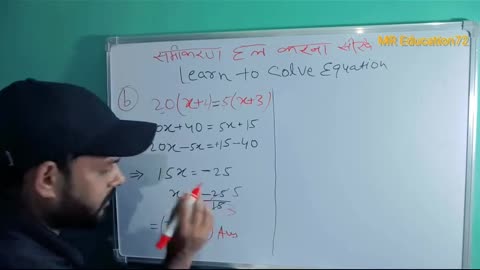 MR Education72
समीकरण हल करना सीखे
Learn to Solve Equation
(b) 20(x+2)=5(x+3)
0x+40=5x+15
20x-5x=+15-40
⇒ 15x=-25
-25 5
15 3
Ans